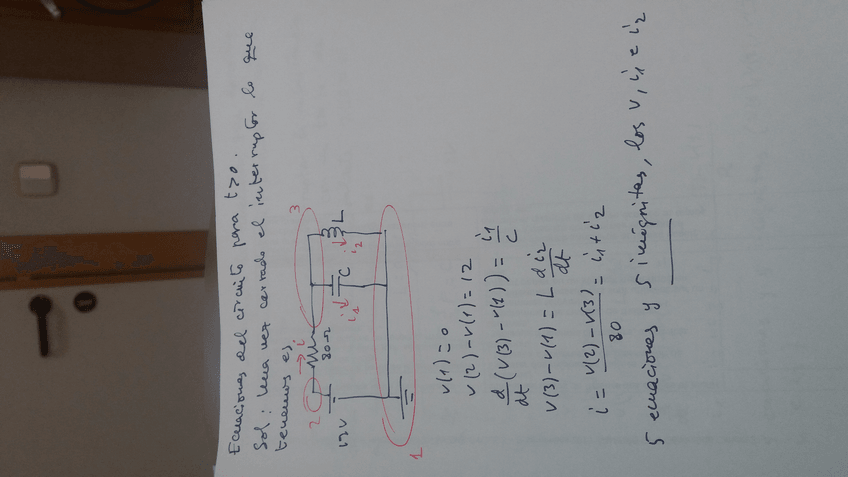 Ecuaciones del circuito para t>0.
Sol: Una vez cerrado el interruptor lo que
tenemos es
2
i
3
80Ω
12V
i1
C
i2
L
1
v(1)=0
v(2)-v(1)=12
d/dt (v(3)-v(1)) = i1/C
v(3)-v(1) = L d i2/dt
i = (v(2)-v(3))/80 = i1+i2
5 ecuaciones y 5 incógnitas, los v, i1 e i2